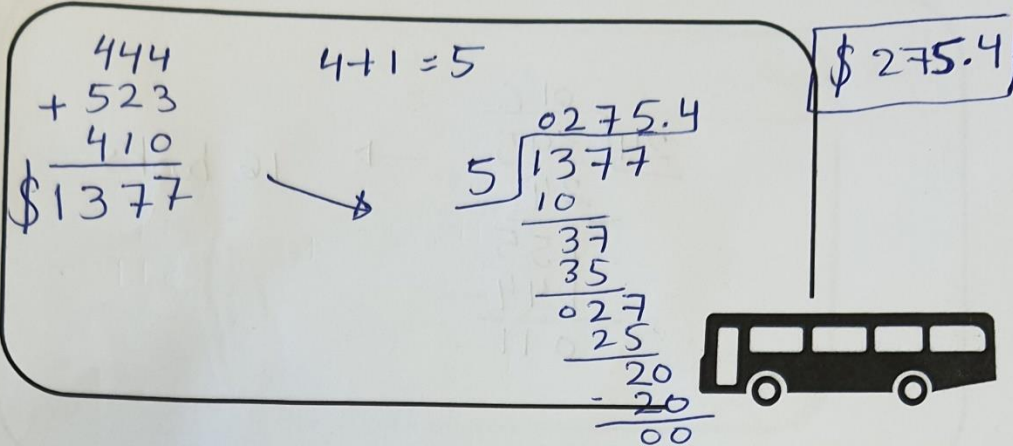 444
+ 523
410
$1377
4+1=5
$ 275.4
0275.4
5 1377
10
37
35
027
25
20
- 20
00